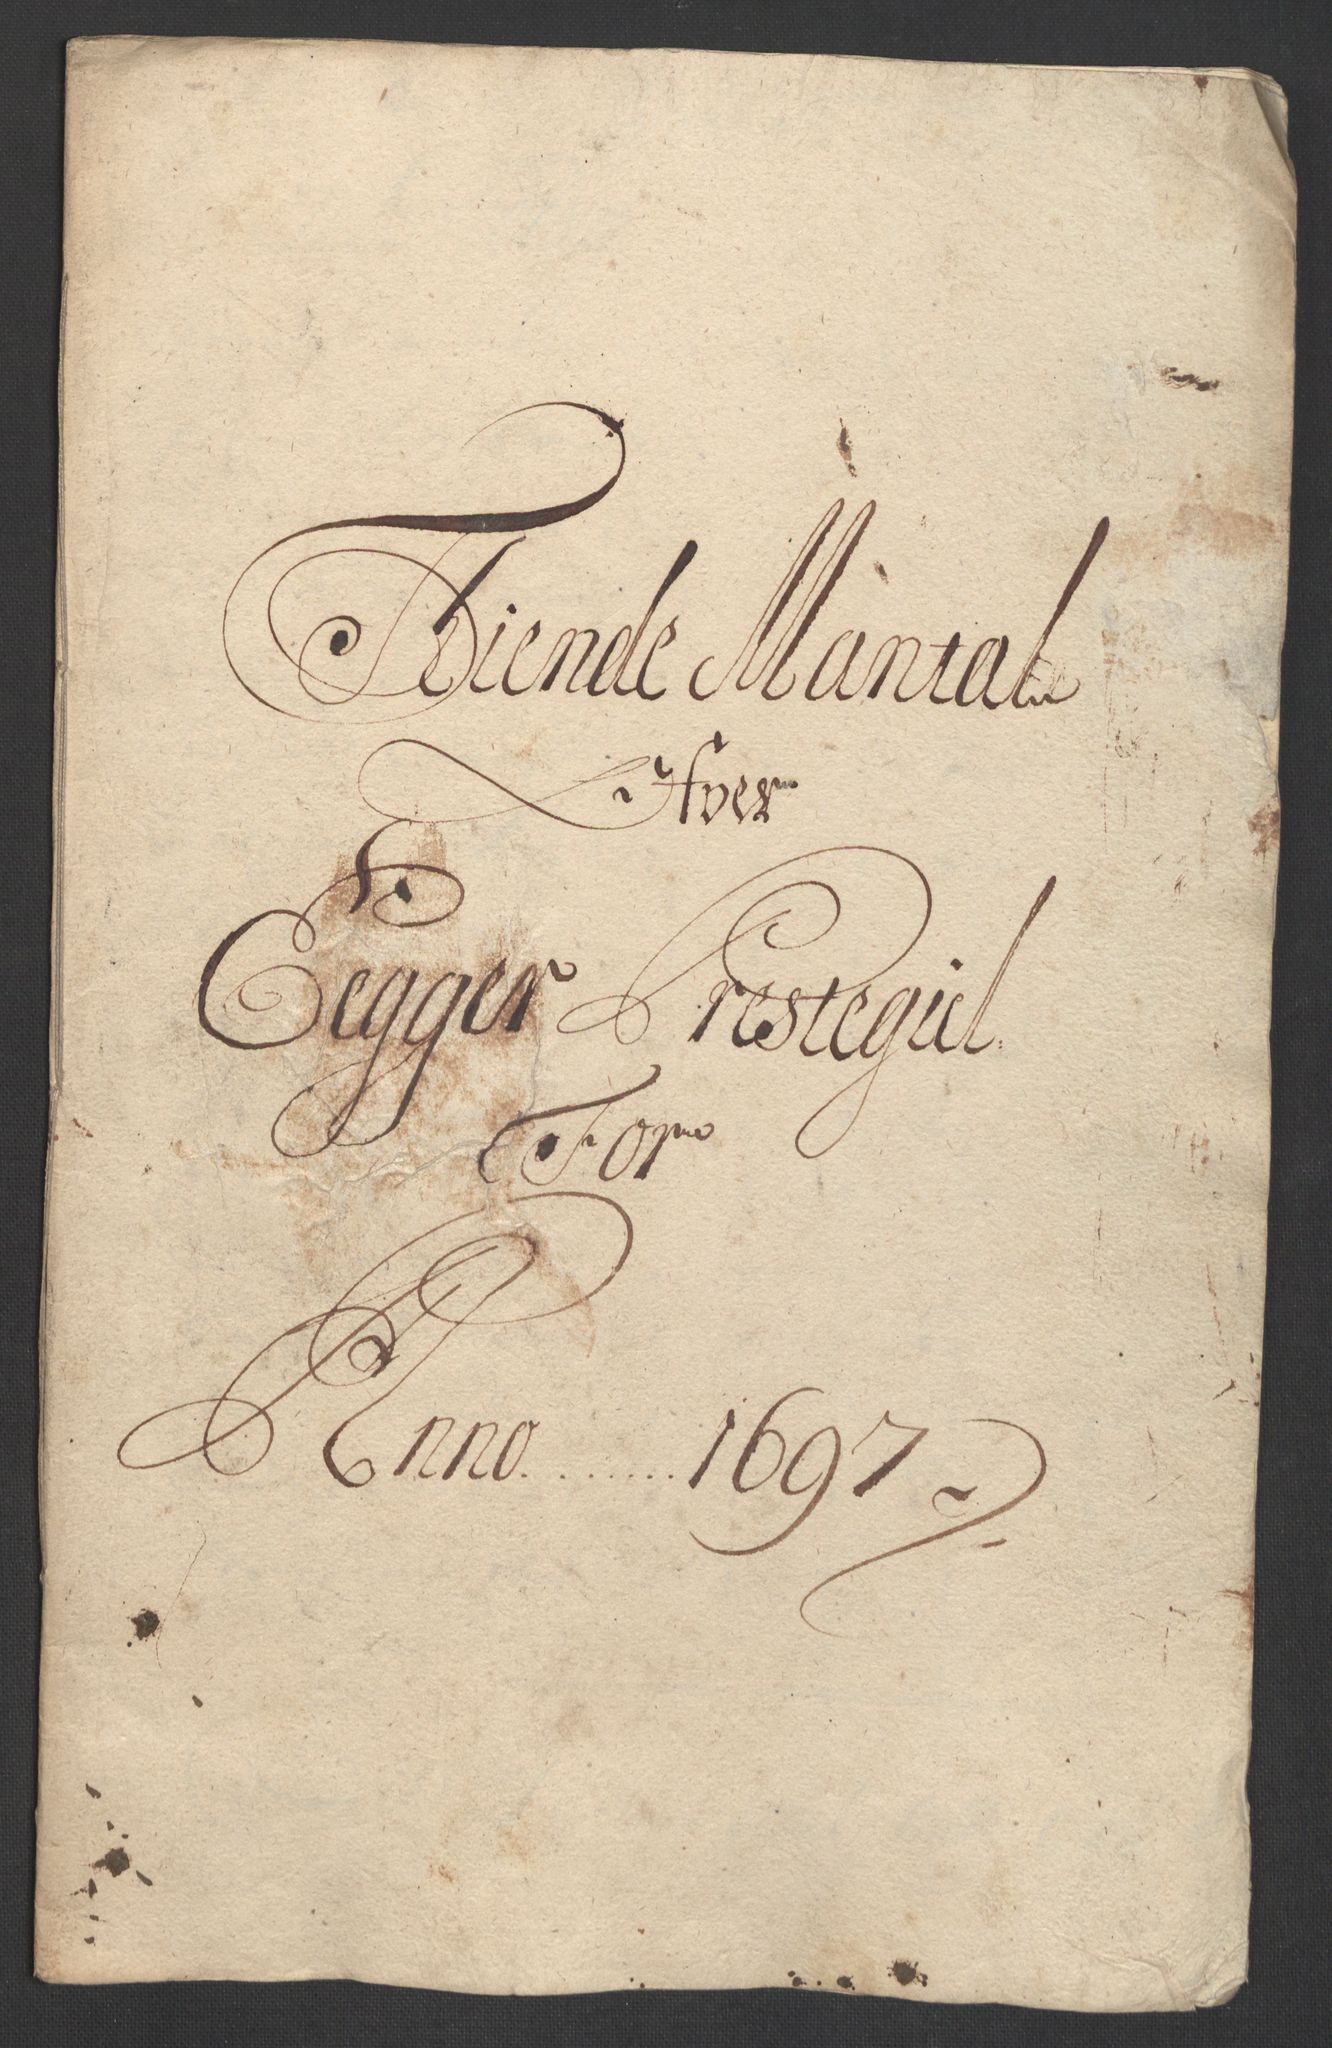 Thiende Mantal
Ofver
Eegger Prestegiel
For
Anno ........ 1697